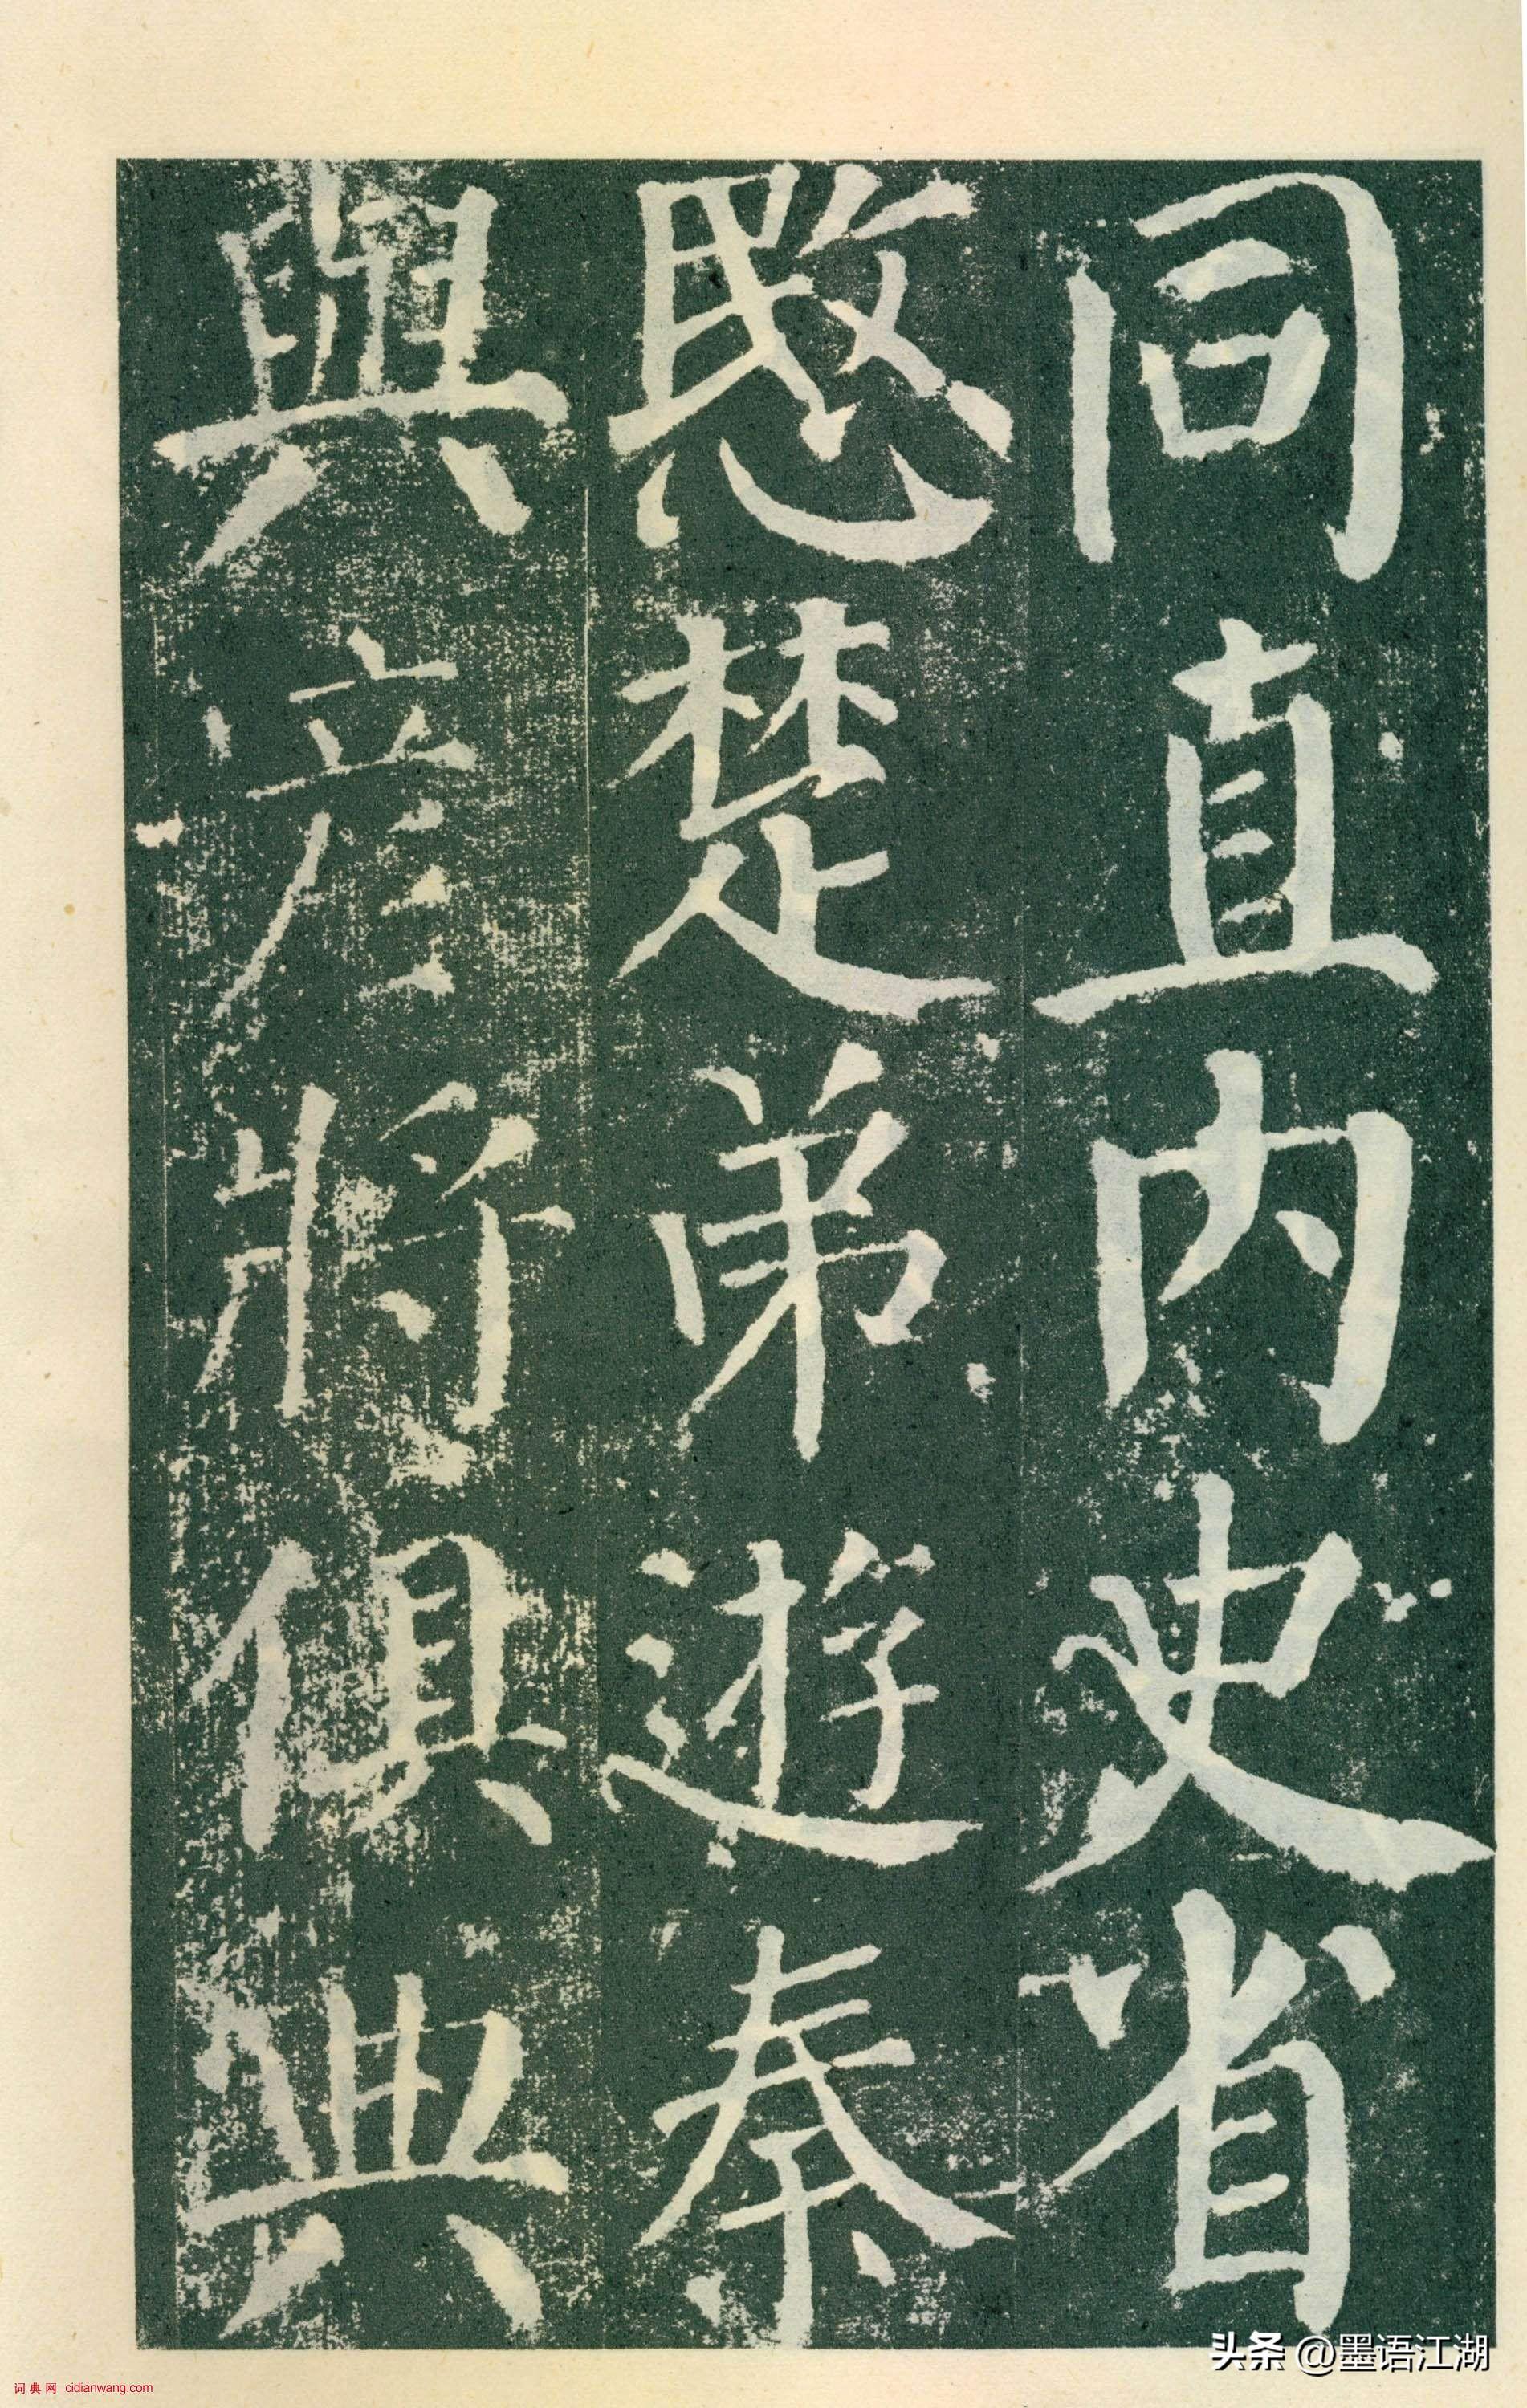 同直內史省
愍楚弟遊秦
與彦將俱典
头条 @墨语江湖
词典网 cidianwang.com